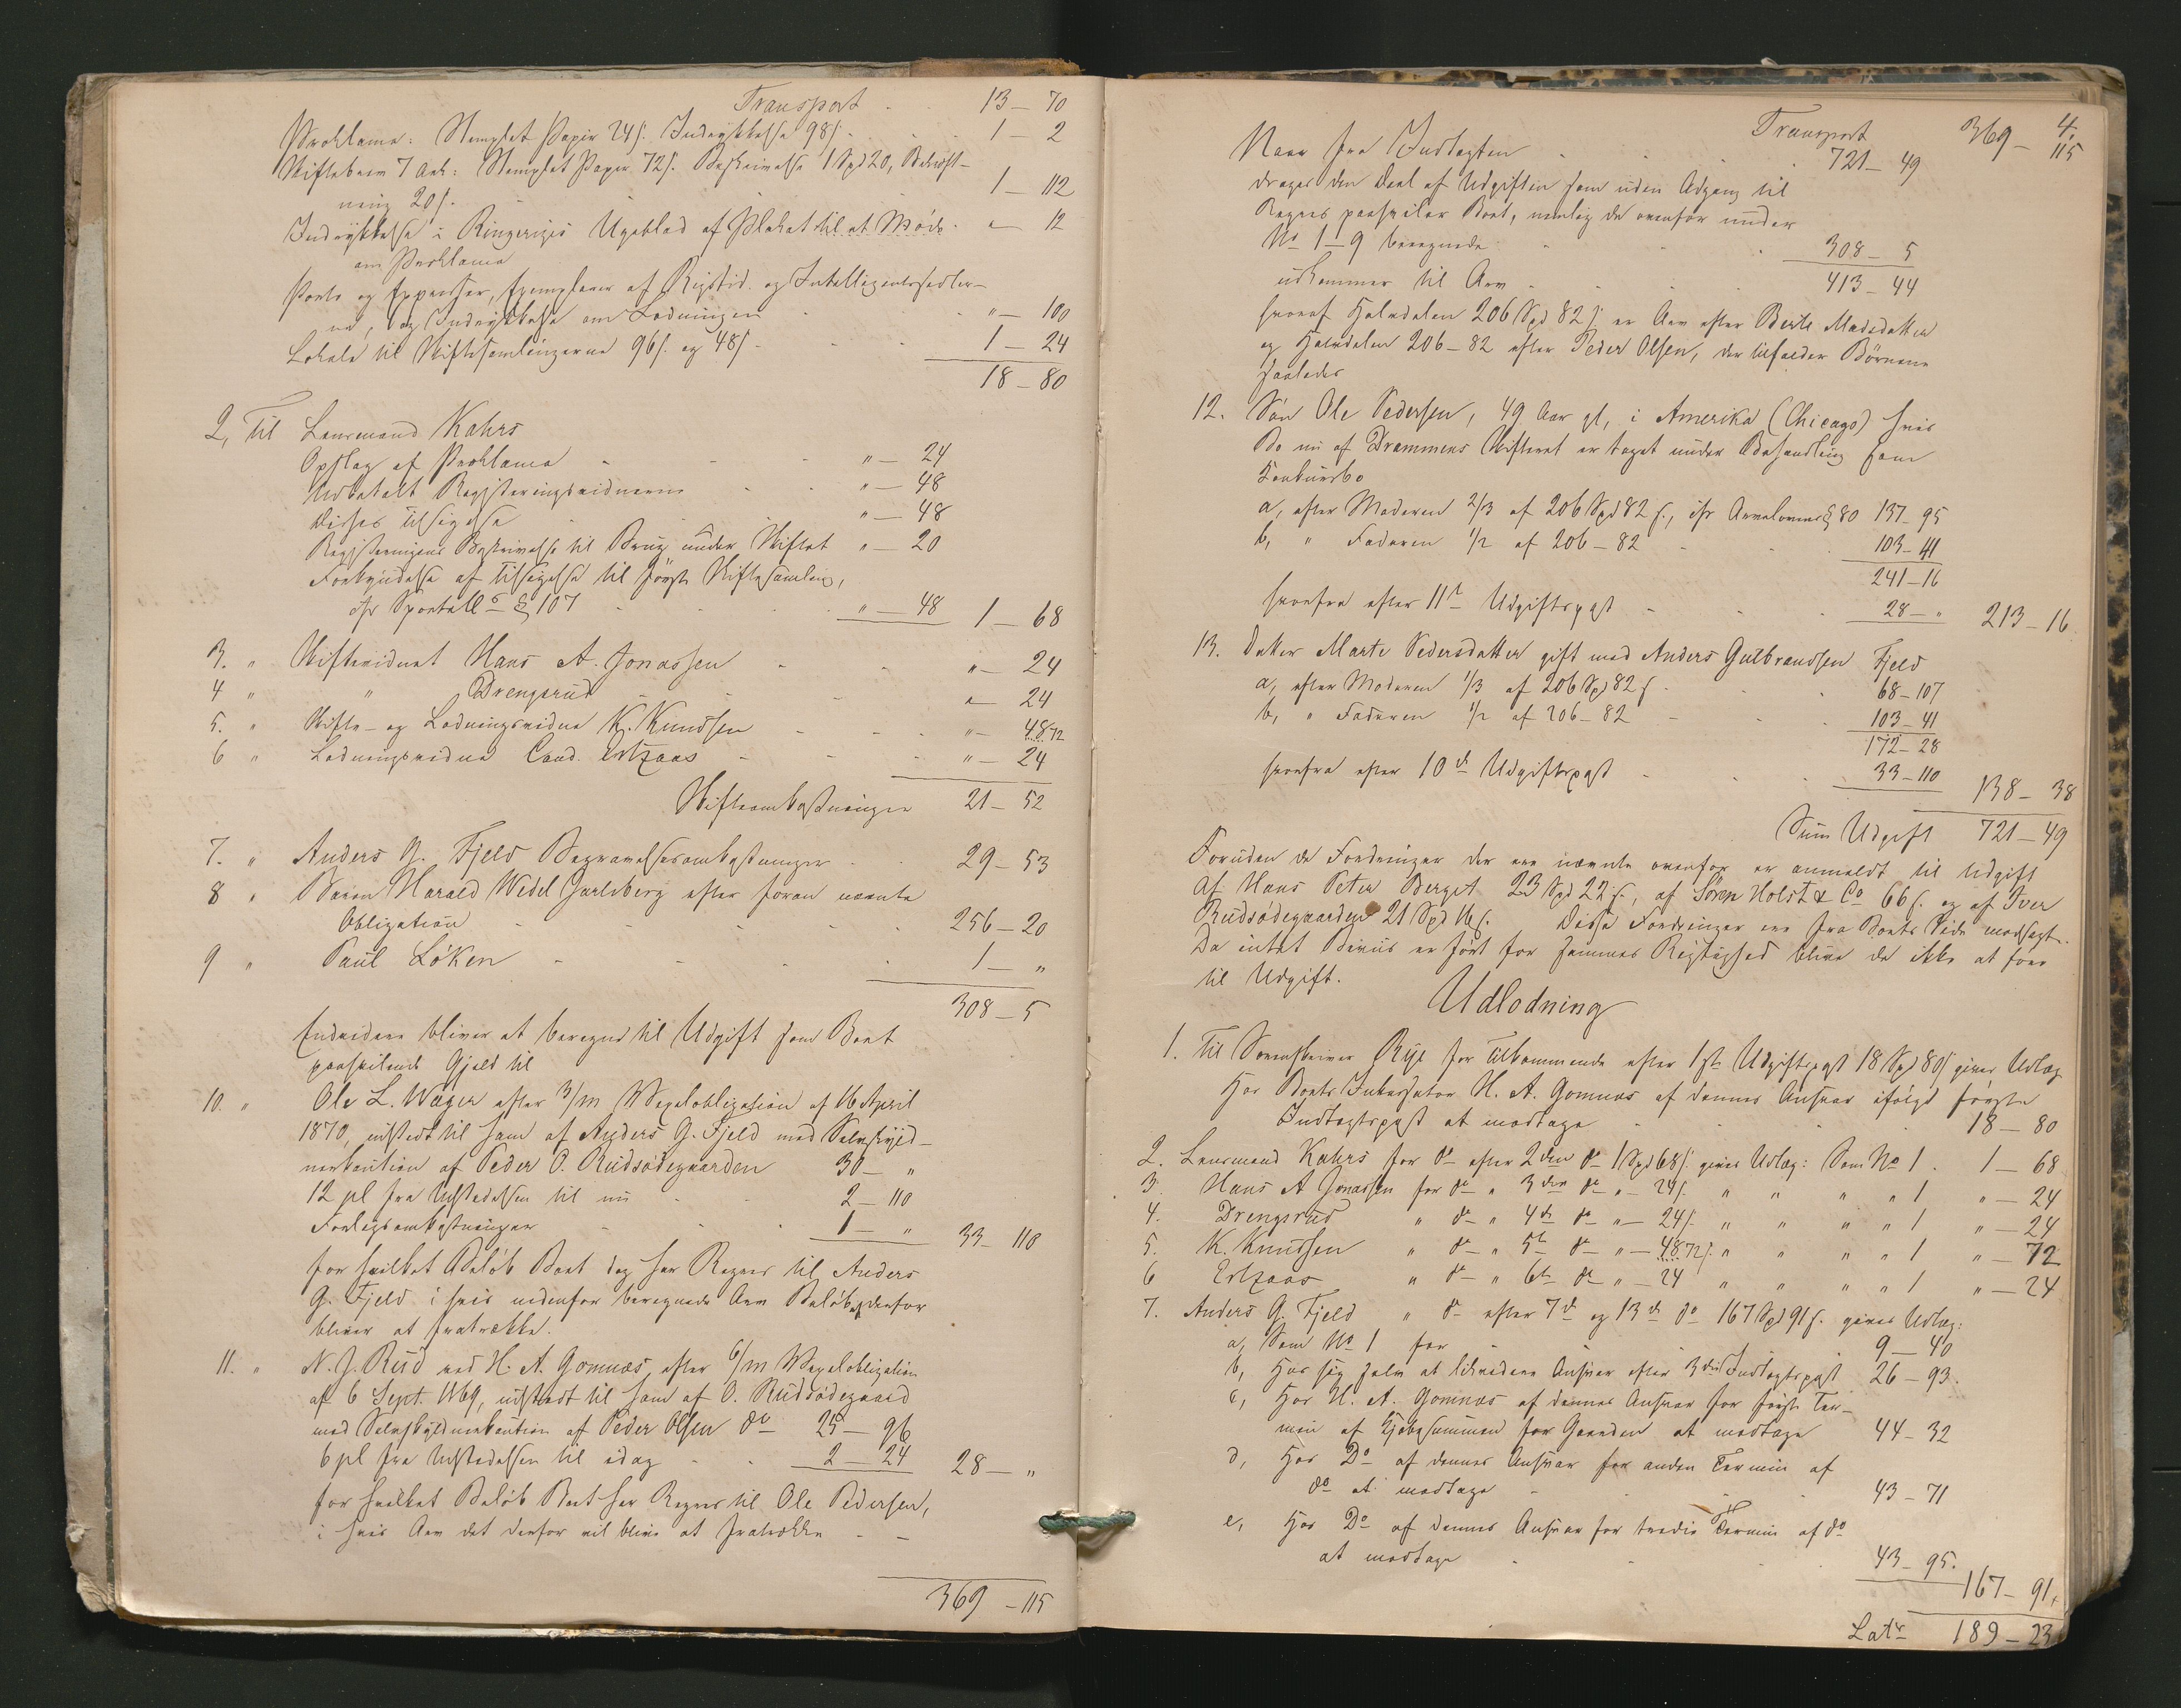 Transport 13 – 70
Proklama: Stemplet Papir 24 s. Indrykkelse 98 s. 1 – 2
Skiftebrev 7 Ark: Stemplet Papir 72 s. Beskrivelse 1 Spd 20, Bekræft-
ning 20 s. 1 – 112
Indrykkelse i Ringeriges Ugeblad af Plakat til et Møde " – 12
om Proklama
Porto og Expenser, Exemplarer af Rigstid. og Intelligentssedler-
ne, og Indrykkelse om Lodningen " – 100
Lokale til Skiftesamlingerne 96 s. og 48 s. 1 – 24
18 – 80
2, Til Lensmand Kahrs
Opslag af Proklama " – 24
Udbetalt Registeringsvidnerne " – 48
disses Tilsigelse " – 48
Registeringens Beskrivelse til Brug under Skiftet " – 20
Forkyndelse af Tilsigelse til første Skiftesamling,
cfr Sportell § 107 " – 48 1 – 68
3. " Skiftevidnet Hans A. Jonassen " – 24
4 " " Drengsrud " – 24
5. " Skifte- og Lodningsvidne K. Knudsen " – 48 72
6 " Lodningsvidne Cand. Ertzaas " – 24
Skifteomkostninger 21 – 52
7. " Anders G. Fjeld Begravelsesomkostninger 29 – 53
8 " Baron Harald Wedel Jarlsberg efter foran nævnte
Obligation 256 – 20
9 " Paul Løken 1 – "
308 – 5
Endvidere bliver at beregne til Udgift som Boet
paahvilende Gjeld til
10. " Ole L. Wager efter 3/m Vexelobligation af 16 April
1870, udstedt til ham af Anders G. Fjeld med Selvskyld-
nerkaution af Peder O. Rudsødegaarden 30 – "
12 pl fra Udstedelsen til nu 2 – 110
Forligsomkostninger 1 – " 33 – 110
for hvilket Beløb Boet dog har Regres til Anders
G. Fjeld i hvis nedenfor beregnede Arv Beløbet derfor
bliver at fratrække.
11. " N. J. Rud ved H. A. Gomnæs efter 6/m Vexelobligation
af 6 Sept. 1869, udstedt til ham af O. Rudsødegaard
med Selvskyldnerkaution af Peder Olsen do 25 – 96
6 pl fra Udstedelsen til idag 2 – 24 28 – "
for hvilket Beløb Boet har Regres til Ole Pedersen,
i hvis Arv det derfor vil blive at fratrække
369 – 115
4.
Transport 369 – 115
Naar fra Indtægten 721 – 49
drages den Deel af Udgiften som uden Adgang til
Regres paahviler Boet, nemlig de ovenfor under
No 1 – 9 beregnede 308 – 5
udkommer til Arv 413 – 44
hvoraf Halvdelen 206 Spd 82 s. er Arv efter Berte Madsdatter
og Halvdelen 206 – 82 efter Peder Olsen, der tilfalder Børnene
saaledes
12. Søn Ole Pedersen, 49 Aar gl, i Amerika (Chicago) hvis
Bo nu af Drammens Skifteret er taget under Behandling som
Konkursbo
a, efter Moderen 2/3 af 206 Spd 82 s., cfr Arvelovens § 80 137 – 95
b, " Faderen 1/2 af 206 – 82 103 – 41
241 – 16
hvorfra efter 11te Udgiftspost 28 – " 213 – 16
13. Datter Marte Pedersdatter gift med Anders Gulbrandsen Fjeld
a, efter Moderen 1/3 af 206 Spd 82 s. 68 – 107
b, " Faderen 1/2 af 206 – 82 103 – 41
172 – 28
hvorfra efter 10de Udgiftspost 33 – 110
138 – 38
Sum Udgift 721 – 49
Foruden de Fordringer der ere nævnte ovenfor er anmeldt til Udgift
af Hans Peter Berget 23 Spd 22 s., af Søren Holst & Co 66 s. og af Iver
Rudsødegaarden 21 Spd 16 s. Disse Fordringer ere fra Boets Side modsagte.
Da intet Beviis er ført for sammes Rigtighed blive de ikke at føre
til Udgift.
Udlodning
1. Til Sorenskriver Rye for Tilkommende efter 1ste Udgiftspost 18 Spd 80 s gives Udlæg
Hos Boets Inkassator H. A. Gomnæs af dennes Ansvar ifølge første
Indtægtspost at modtage 18 – 80
2. Lensmand Kahrs for do efter 2den do 1 Spd 68 s. gives Udlæg: Som No 1. 1 – 68
3. Hans A Jonassen for do " 3die do " – 24 s. " " " " 1 " – 24
4. Drengsrud " do " 4de do " – 24 s. " " " " 1 " – 24
5. K. Knudsen " do " 5te do " – 48 72 s. " " " " 1 " – 72
6 Ertzaas " do " 6te do " – 24 " " " " 1 " – 24
7. Anders G. Fjeld " do efter 7de og 13de do 167 Spd 91 s. gives Udlæg:
a, Som No 1 for 9 – 40
b, Hos sig selv at likvidere Ansvar efter 3die Indtægtspost 26 – 93.
c, Hos H. A. Gomnæs af dennes Ansvar for første Ter-
min af Kjøbesummen for Gaarden at modtage 44 – 32
d, Hos Do af dennes Ansvar for anden Termin af
do at modtage 43 – 71
e, Hos Do af dennes Ansvar for tredie Termin af do
at modtage 43 – 95.
167 – 91
Lats 189 – 23